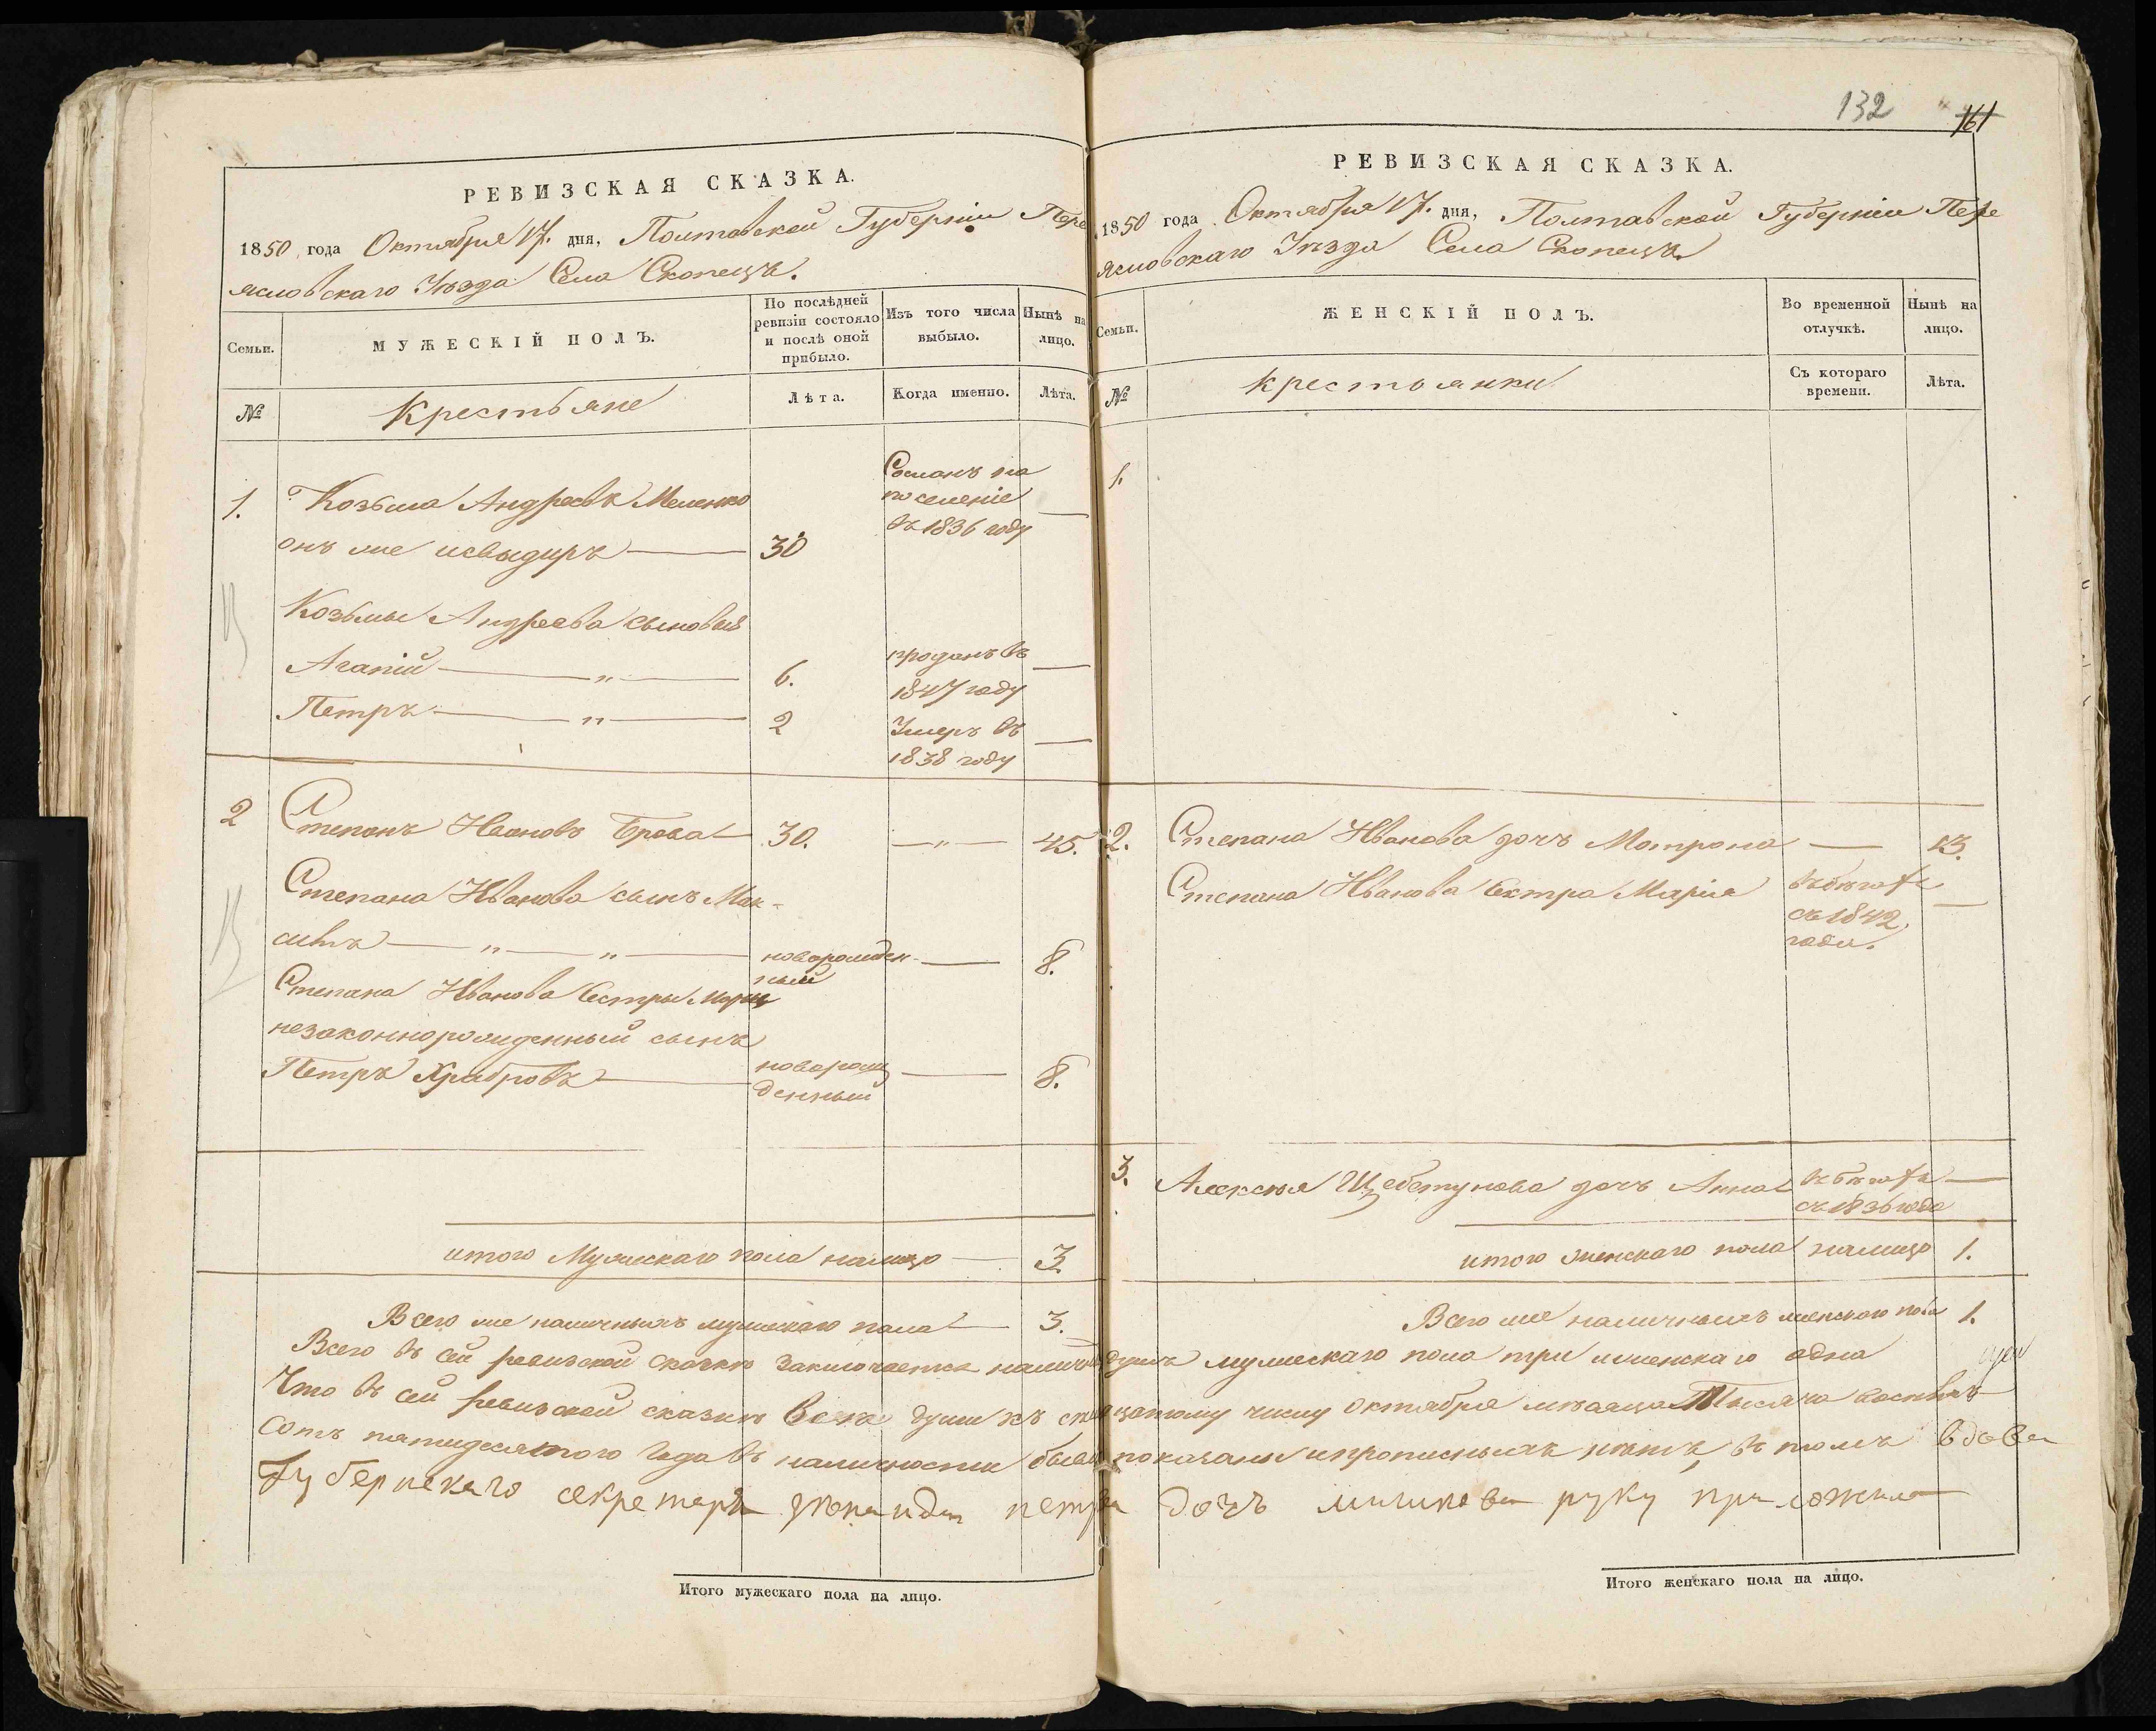 132 161
РЕВИЗСКАЯ СКАЗКА.
1850 года Октября 17. дня, Полтавской Губерніи Пере
яславскаго Уѣзда Села Скопецъ.
Семьи.
МУЖЕСКІЙ ПОЛЪ.
По послѣдней
ревизіи состояло
и послѣ оной
прибыло.
Изъ того числа
выбыло.
Нынѣ на
лицо.
№
Крестьяне
Лѣта.
Когда именно.
Лѣта.
1. Козьма Андреевъ
онъ же 30
Сосланъ на
поселеніе
въ 1836 году —
Козьмы Андреева сыновья
Агапій — " — 6. проданъ въ
1847 году —
Петръ — " — 2 Умеръ въ
1838 году —
2 Степанъ Ивановъ 30. — " — 45.
Степана Иванова сынъ Мак-
симъ — " — " — новорожден-
ный — 8.
Степана Иванова сестры Маріи
незаконнорожденный сынъ
Петръ Храбровъ — новорож
денный — 8.
итого Мужескаго пола налицо — 3.
Всего же наличныхъ мужескаго пола — 3.
РЕВИЗСКАЯ СКАЗКА.
1850 года Октября 17. дня, Полтавской Губерніи Пере
яславскаго Уѣзда Села Скопецъ.
Семьи.
ЖЕНСКІЙ ПОЛЪ.
Во временной
отлучкѣ.
Нынѣ на
лицо.
№
крестьянки
Съ котораго
времени.
Лѣта.
1.
2. Степана Иванова дочь Матрона — 13.
Степана Иванова Сестра Марія въ бѣгахъ
съ 1842.
года. —
3. Алексѣя дочь Анна въ бѣгахъ —
съ 1836 года
итого женскаго пола налицо 1.
Всего же наличныхъ женскаго пола 1.
Всего въ сей ревизской сказкѣ заключается наличныхъ душъ мужескаго пола три женскаго одна
Что въ сей ревизской сказкѣ все души къ октября мѣсяца Тысяча восемь
сотъ пятидесятого года въ наличности показаны и прописныхъ нѣтъ, въ томъ вдова
Губернскаго секретаря петрова дочь руку приложила
Итого мужескаго пола на лицо.
Итого женскаго пола на лицо.